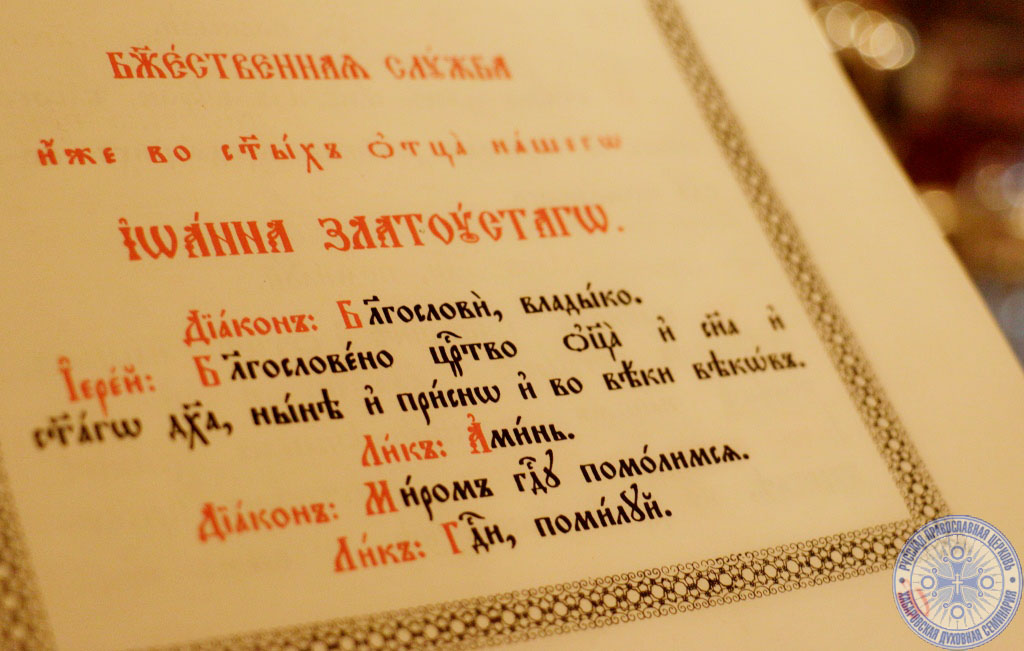 Бж҃е́ственная слꙋ́жба
и҆́же во ст҃ы́хъ ѻ҆тца̀ на́шегѡ
І҆ѡа́нна Златоꙋ́стагѡ.
Дїа́конъ: Бл҃гословѝ, влады́ко.
І҆ере́й: Бл҃гослове́но црⷭ҇тво ѻ҆ц҃а̀ и҆ сн҃а и҆
ст҃а́гѡ дх҃а, ны́нѣ и҆ при́снѡ и҆ во вѣ́ки вѣкѡ́въ.
Ли́къ: А҆ми́нь.
Дїа́конъ: Ми́ромъ гдⷭ҇ꙋ помо́лимсѧ.
Ли́къ: Гдⷭ҇и, поми́лꙋй.
РУССКАЯ ПРАВОСЛАВНАЯ ЦЕРКОВЬ
ХАБАРОВСКАЯ ДУХОВНАЯ СЕМИНАРИЯ